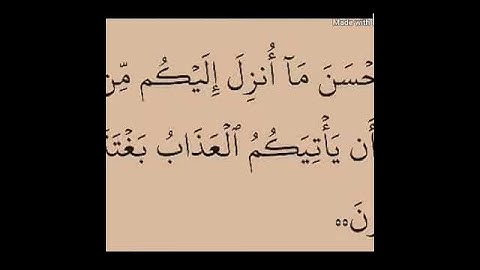 Made with
حۡسَنَ مَآ أُنزِلَ إِلَيۡكُم مِّن
أَن يَأۡتِيَكُمُ ٱلۡعَذَابُ بَغۡتَ
ونَ ٥٥